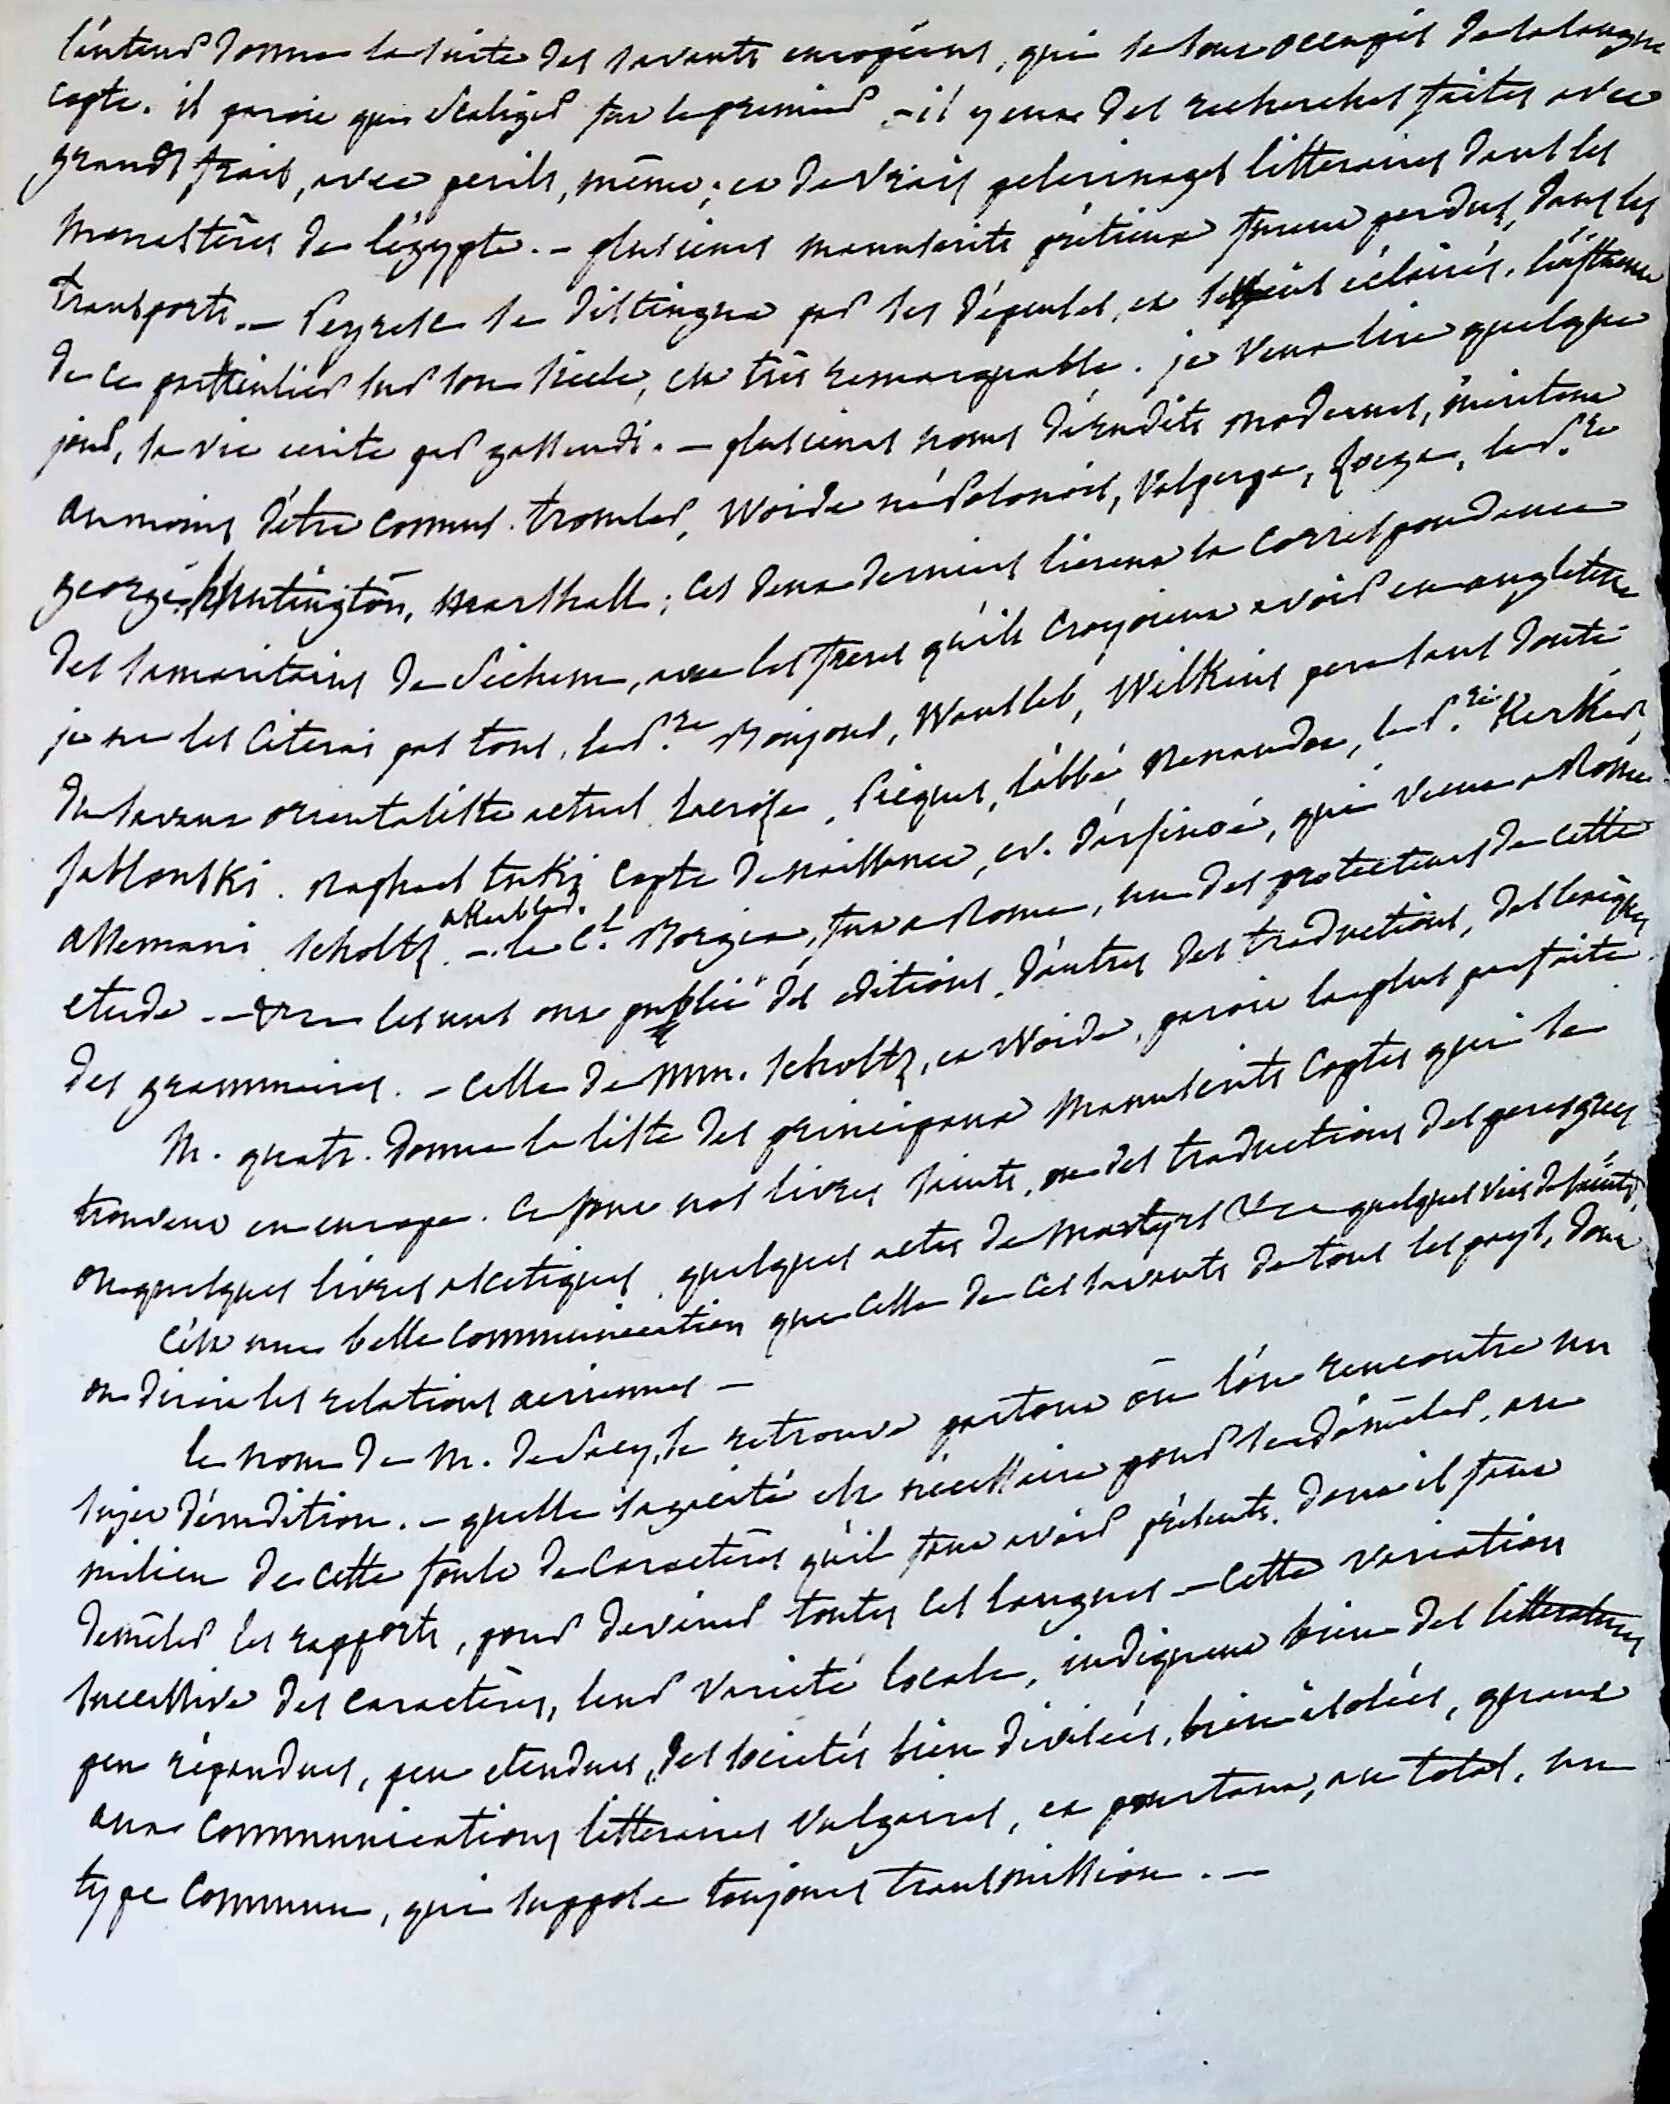 l'auteur donne la suite des savants européens, qui se sont occupés de la langue
copte. il paroit que Scaliger fut le premier - il y eut des recherches faites avec
grands frais, avec perils, même; et de vrais pelerinages litteraires dans les
monastères de l'égypte. - plusieurs manuscrits prétieux furent perdus, dans les
transports. - Peyresc se distingua par ses dépenses, et ses soins éclairés. l'influence
de ce particulier sur son siècle, est très remarquable. je veux lire quelque
jour, sa vie ecrite par gassendi. - plusieurs noms d'érudits modernes, méritent
au moins d'être connus. tromler, Woide né Polonois, Valperga, Zoega, le P.re
georgi, Huntington, Marshall; ces deux derniers lièrent la correspondance
des samaritains de Sichem, avec les freres qu'ils croyoient avoir en angleterre
je ne les citerai pas tous. le P.re Bonjour, Wansleb, Wilkins père sans doute
du savant orientaliste actuel. Lacroze, Picques, l'abbé Renaudot, le P.re Kerker,
Jablonski. Raphael tuki, copte de naissance, ev. d'arsinoé, qui vécut a Rome
assemani. scholtz. akerblad. - le C.l Borgia, fut a Rome, un des protecteurs de cette
etude. - &c les uns ont publié des editions, d'autres des traductions, des lexiques
des grammaires. - celle de MM. scholtz, et Woide, paroit la plus parfaite.
M. quatr. donne la liste des principaux manuscrits coptes qui se
trouvent en europe. ce sont nos livres saints, ou des traductions des peres grecs
ou quelques livres ascetiques, quelques actes de martyrs &c quelques vies de saints,
c'est une belle communication que celle de ces savants de tous les pays, dont
on diroit les relations aeriennes -
le nom de M. de Sacy, se retrouve partout où l'on rencontre un
sujet d'érudition. - quelle sagacité est nécessaire pour se démêler, au
milieu de cette foule de caractères qu'il faut avoir présents, dont il faut
demêler les rapports, pour deviner toutes ces langues - cette variation
successive des caractères, leur varieté locale, indiquent bien des litteratures
peu répandues, peu etendues, des societés bien divisées, bien isolées, quant
aux communications litteraires vulgaires, et pourtant, au total, un
type commun, qui suppose toujours transmission. -